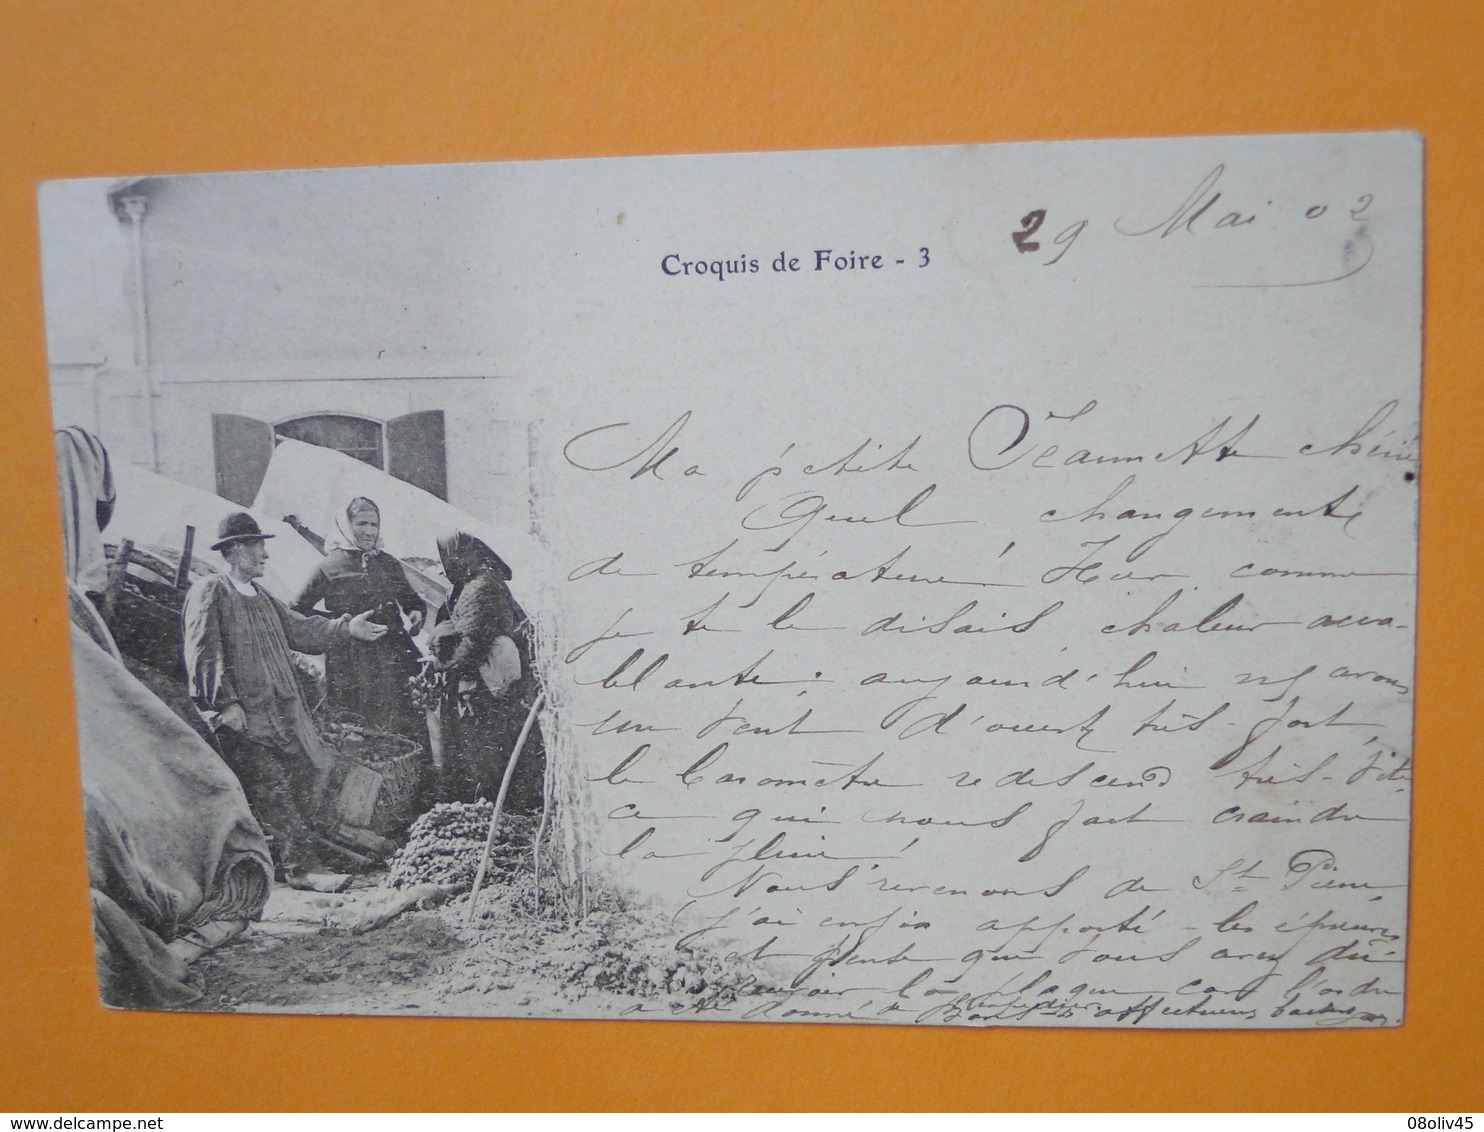 Croquis de Foire - 3
29 Mai 02
Ma petite Jeannette chérie
Quel changement
de température! Hier, comme
je te le disais chaleur acca-
blante; aujourd'hui ns avons
un vent d'ouest très-fort,
le baromètre redescend très-vite
ce qui nous fait craindre
la pluie!
Nous revenons de St Pierre
j'ai enfin apporté les épreuves
et pense que vous avez dû
recevoir la plaque car l'ordre
a été donné de Bons & affectueux baisers
08oliv45